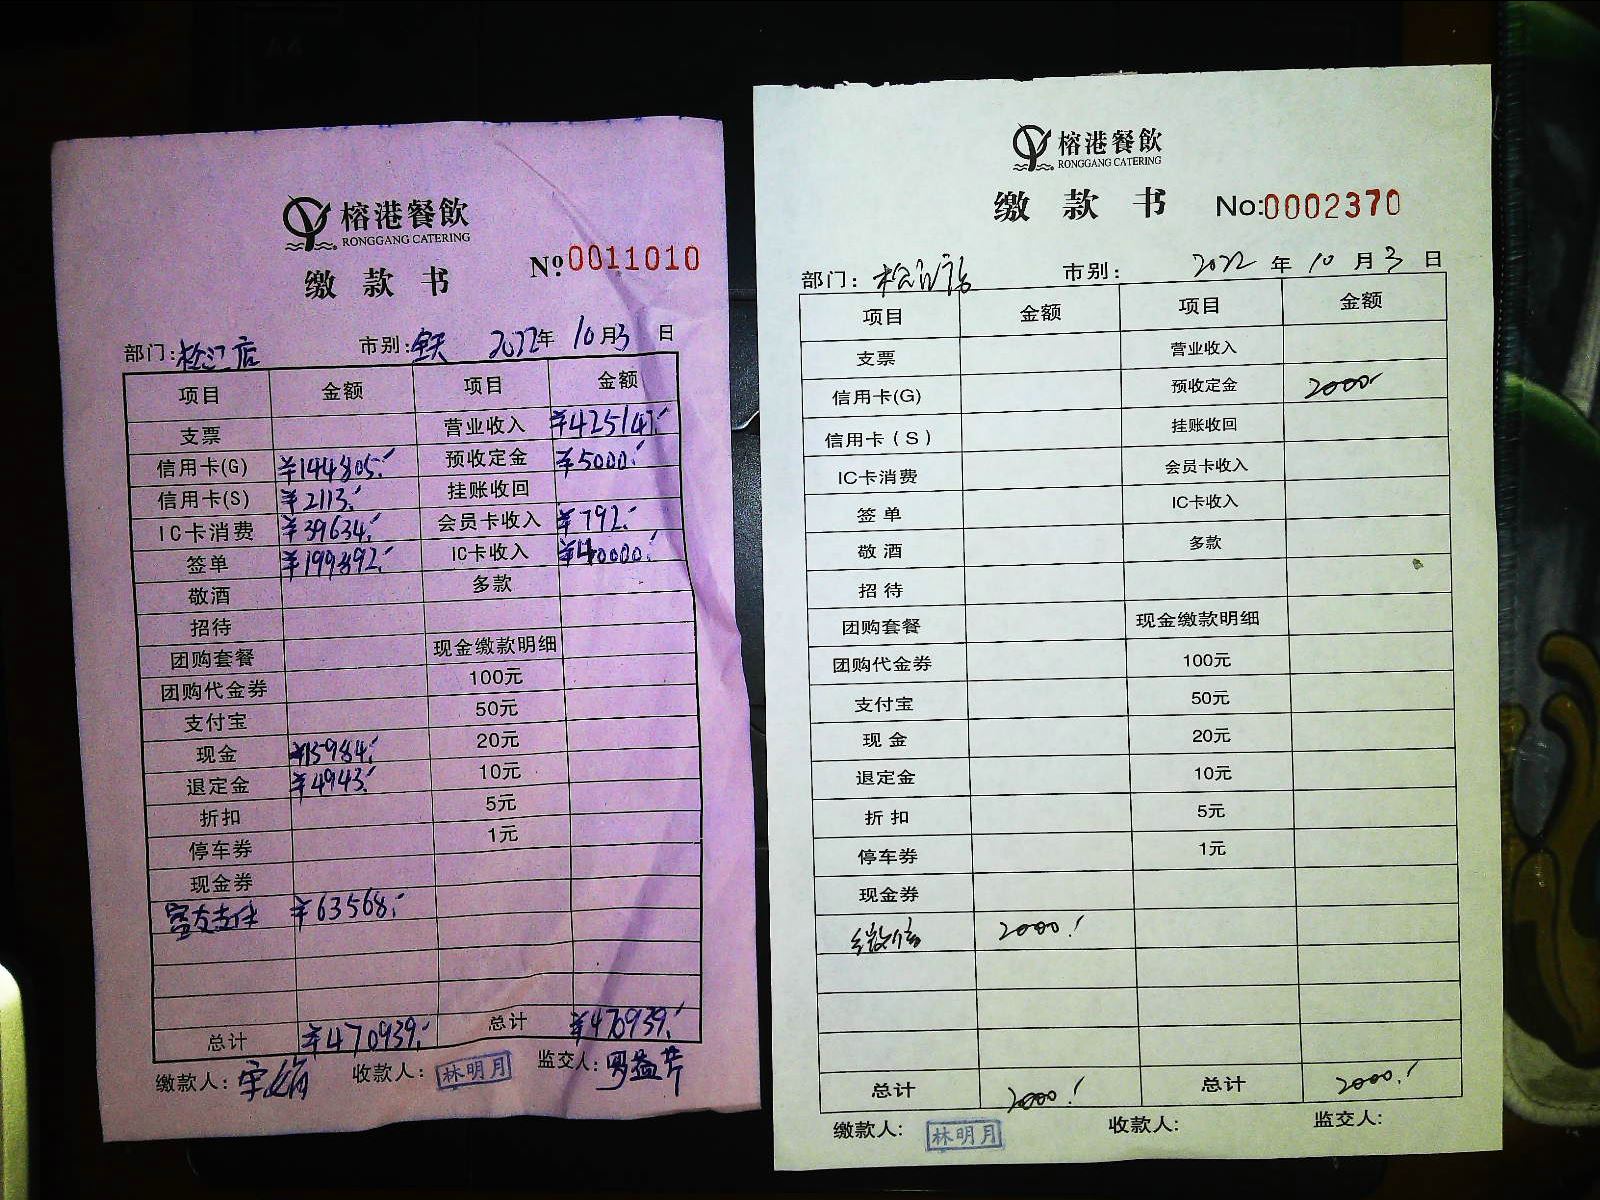 榕港餐飲
RONGGANG CATERING
缴款书 Nº 0011010
部门:松江店 市别:全天 2022年 10月3日
项目 金额 项目 金额
支票 营业收入 ¥425147.-
信用卡(G) ¥144805.- 预收定金 ¥5000.-
信用卡(S) ¥2113.- 挂账收回
IC卡消费 ¥39634.- 会员卡收入 ¥792.-
签单 ¥199892.- IC卡收入 ¥40000.-
敬酒 多款
招待
团购套餐 现金缴款明细
团购代金券 100元
支付宝 50元
现金 ¥15984.- 20元
退定金 ¥4943.- 10元
折扣 5元
停车券 1元
现金券
富友支付 ¥63568.-
总计 ¥470939.- 总计 ¥470939.-
缴款人: 收款人: 林明月 监交人:
榕港餐飲
RONGGANG CATERING
缴款书 No:0002370
部门: 松江店 市别: 2022年 10月3日
项目 金额 项目 金额
支票 营业收入
信用卡(G) 预收定金 2000.-
信用卡(S) 挂账收回
IC卡消费 会员卡收入
签单 IC卡收入
敬酒 多款
招待
团购套餐 现金缴款明细
团购代金券 100元
支付宝 50元
现金 20元
退定金 10元
折扣 5元
停车券 1元
现金券
微信 2000.-
总计 2000.- 总计 2000.-
缴款人: 林明月 收款人: 监交人: